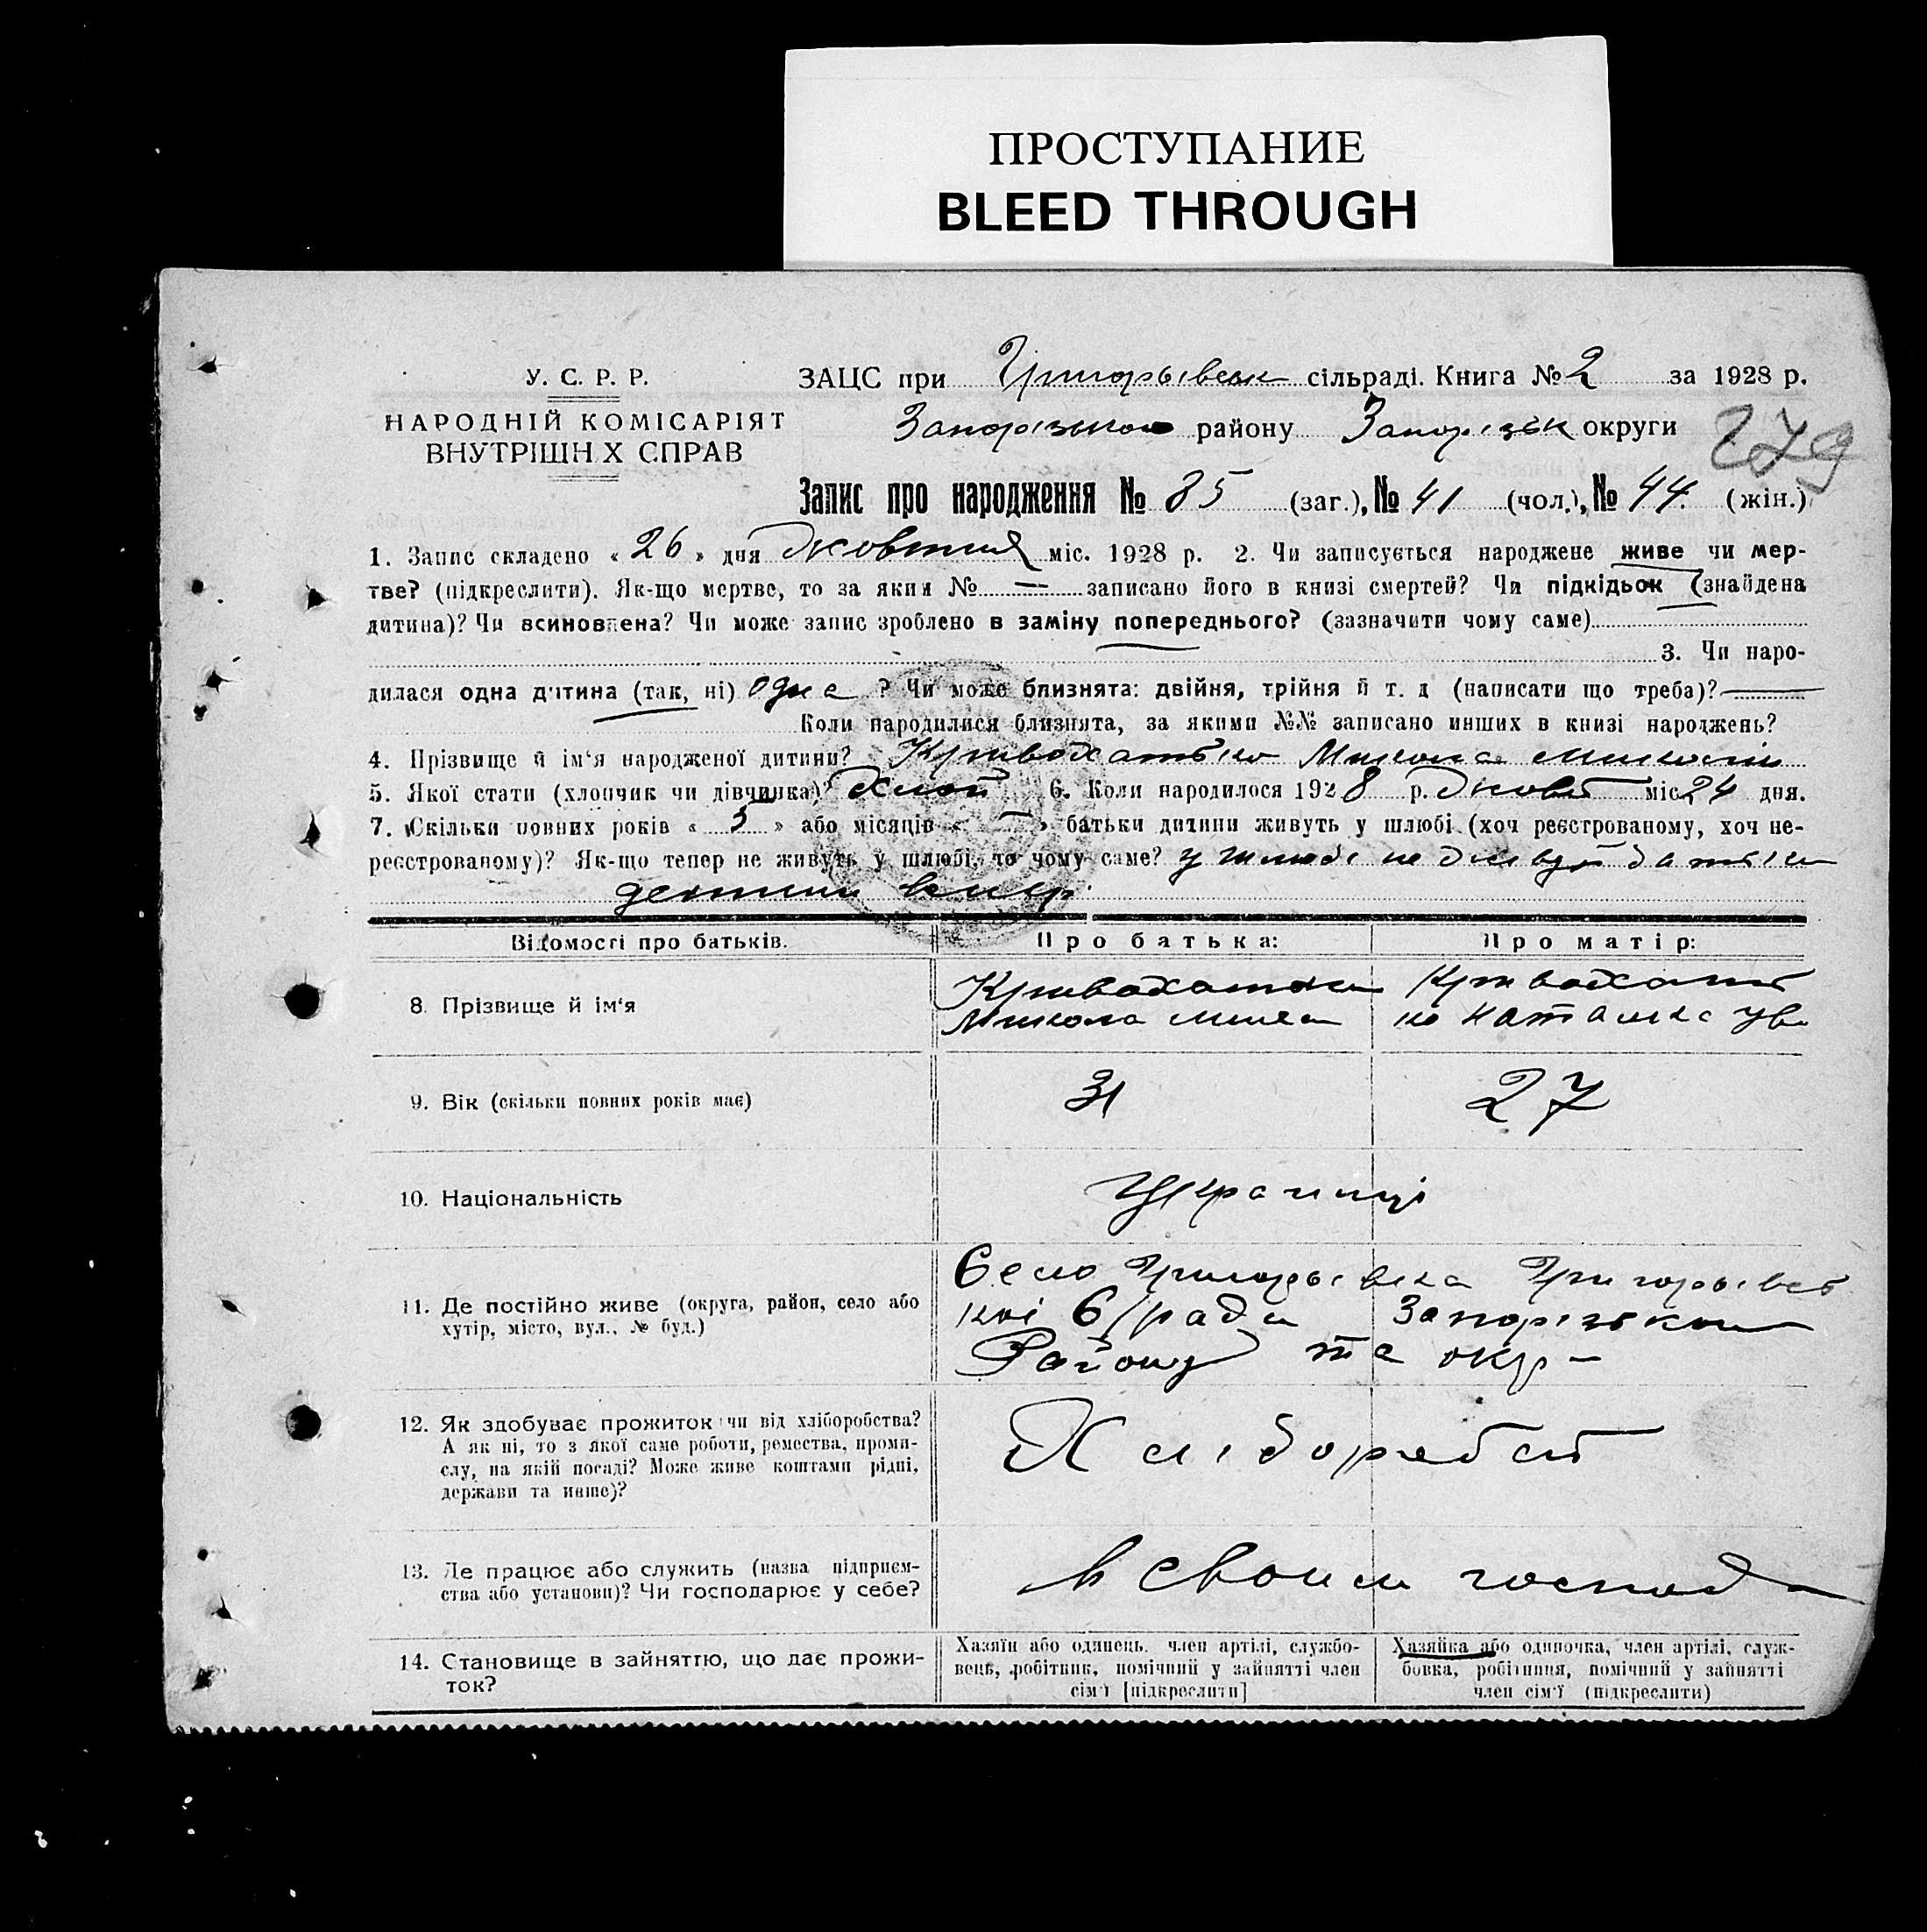 ПРОСТУПАНИЕ
BLEED THROUGH
У. С. Р. Р.
НАРОДНІЙ КОМІСАРІЯТ
ВНУТРІШН Х СПРАВ
ЗАЦС при Григорьівськ сільраді. Книга № 2 за 1928 р.
Запорізького району Запорізьк округи
279
Запис про народження № 85 (заг.), № 41 (чол.), № 44 (жін.)
1. Запис складено « 26 » дня Жовтня міс. 1928 р. 2. Чи записується народжене живе чи мер-
тве? (підкреслити). Як-що мертве, то за яким № — записано його в книзі смертей? Чи підкідьок (знайдена
дитина)? Чи всиновлена? Чи може запис зроблено в заміну попереднього? (зазначити чому саме)
3. Чи наро-
дилася одна дитина (так, ні) одна ? Чи може близнята: двійня, трійня й т. д (написати що треба)? —
Коли народилися близнята, за якими №№ записано инших в книзі народжень?
4. Прізвище й ім‘я народженої дитини? Кривохатько Микола
5. Якої стати (хлопчик чи дівчинка)? Хлоп 6. Коли народилося 1928 р. Жовт міс 24 дня.
7. Скільки повних років « 5 » або місяців « — » батьки дитини живуть у шлюбі (хоч реєстрованому, хоч не-
реєстрованому)? Як-що тепер не живуть у шлюбі, то чому саме? у шлюбі не
Відомості про батьків. Про батька: Про матір:
8. Прізвище й ім‘я
Кривохатько Кривохать
Микола ко Наталка
9. Вік (скільки повних років має) 31 27
10. Національність Українці
11. Де постійно живе (округа, район, село або
хутір, місто, вул., № буд.)
Село Григорьівка Григорьівсь
кої С/ради Запорізького
Району та окр-
12. Як здобуває прожиток чи від хліборобства?
А як ні, то з якої саме роботи, ремества, проми-
слу, на якій посаді? Може живе коштами рідні,
держави та инше)?
Хліборобст
13. Де працює або служить (назва підприєм-
ства або установи)? Чи господарює у себе?
в своим господ
14. Становище в зайняттю, що дає прожи-
ток?
Хазяїн або одинець, член артілі, службо-
вець, робітник, помічний у зайнятті член
сім‘ї [підкреслити]
Хазяйка або одиночка, член артілі, служ-
бовка, робітниця, помічний у зайнятті
член сім‘ї (підкреслити)